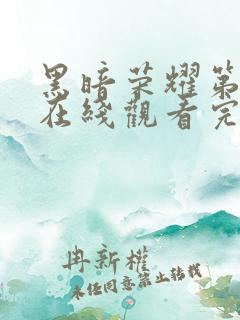 黑暗荣耀第
在线觀看完
冉新權
未经同意禁止转载